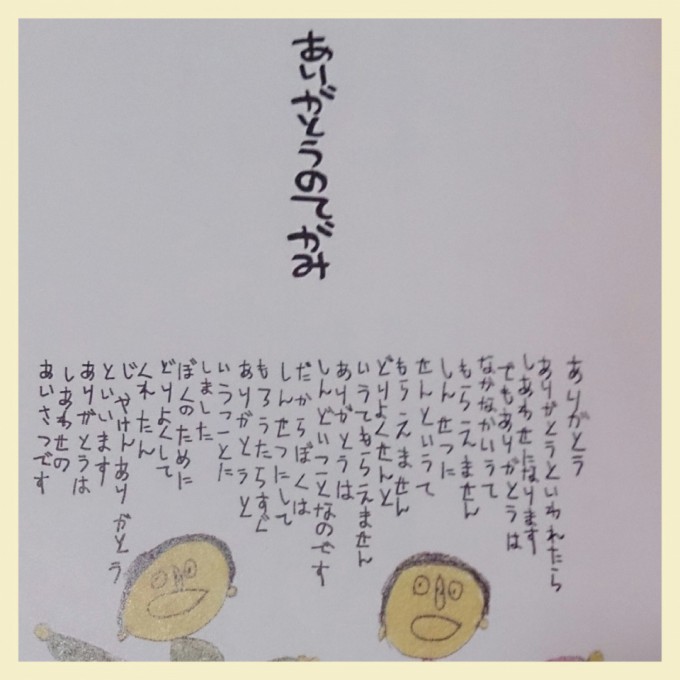 ありがとうのてがみ
ありがとう
ありがとうといわれたら
しあわせになります
でもありがとうは
なかなかいうて
もらえません
しんせつに
せんというて
もらえません
どりよくせんと
いうてもらえません
ありがとうは
しんどいことなのです
だからぼくは
しんせつにして
もろうたらすぐ
ありがとうと
いうことに
しました
ぼくのために
どりよくして
くれたん
じゃけんありがとう
といいます
ありがとうは
しあわせの
あいさつです